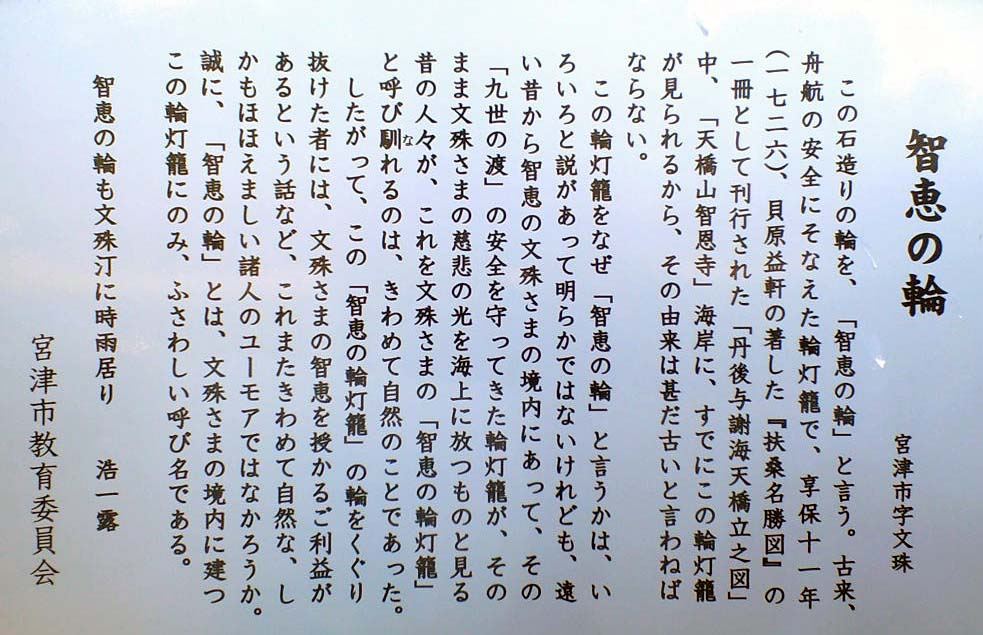 智恵の輪
宮津市字文珠
この石造りの輪を、「智恵の輪」と言う。古来、
舟航の安全にそなえた輪灯籠で、享保十一年
(一七二六)、貝原益軒の著した『扶桑名勝図』の
一冊として刊行された「丹後与謝海天橋立之図」
中、「天橋山智恩寺」海岸に、すでにこの輪灯籠
が見られるから、その由来は甚だ古いと言わねば
ならない。
この輪灯籠をなぜ「智恵の輪」と言うかは、い
ろいろと説があって明らかではないけれども、遠
い昔から智恵の文殊さまの境内にあって、その
「九世の渡」の安全を守ってきた輪灯籠が、その
まま文殊さまの慈悲の光を海上に放つものと見る
昔の人々が、これを文殊さまの「智恵の輪灯籠」
と呼び馴(な)れるのは、きわめて自然のことであった。
したがって、この「智恵の輪灯籠」の輪をくぐり
抜けた者には、文殊さまの智恵を授かるご利益が
あるという話など、これまたきわめて自然な、し
かもほほえましい諸人のユーモアではなかろうか。
誠に、「智恵の輪」とは、文殊さまの境内に建つ
この輪灯籠にのみ、ふさわしい呼び名である。
智恵の輪も文殊汀に時雨居り 浩一露
宮津市教育委員会